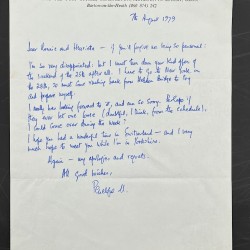 Barton-on-the-Heath (060 874) 242
7th August 1979
Dear Ronnie and Henrietta — if you'll forgive me being so personal:
I'm so very disappointed: but I must turn down your kind offer of
the weekend of the 25th after all. I have to go to New York on
the 28th, so must come roaring back from Hebden Bridge to try
and prepare myself.
I really was looking forward to it, and am so sorry. Perhaps if
they ever let me loose (doubtful, I think, from the schedule!,
I could come over during the week?
I hope you had a wonderful time in Switzerland — and I very
much hope to meet you while I'm in Yorkshire.
Again — my apologies and regrets.
All good wishes,